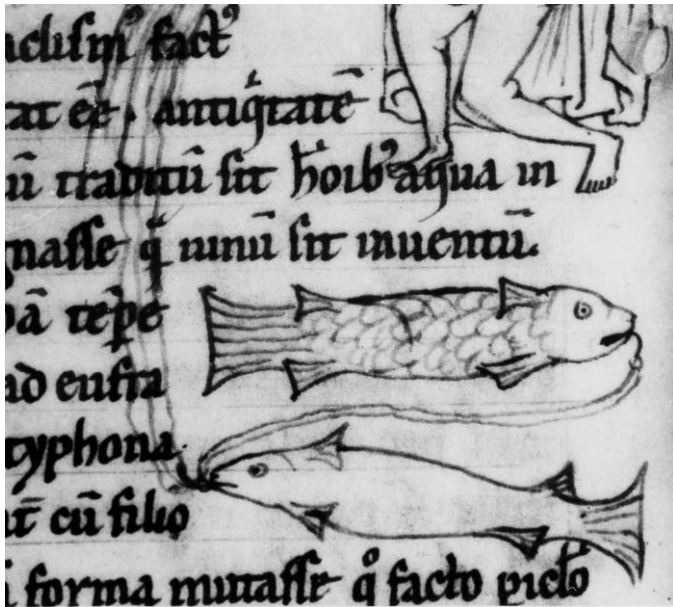 aclism᷒ fact᷒
tat eē. antiq̇tatē
ū traditū sit hoīb᷒ aqua in
gnasse q̄ uinū sit inuentū.
bā tēpe
ad eufra
typhona
it̄ cū filio
forma mutasse q̊ facto picib᷒